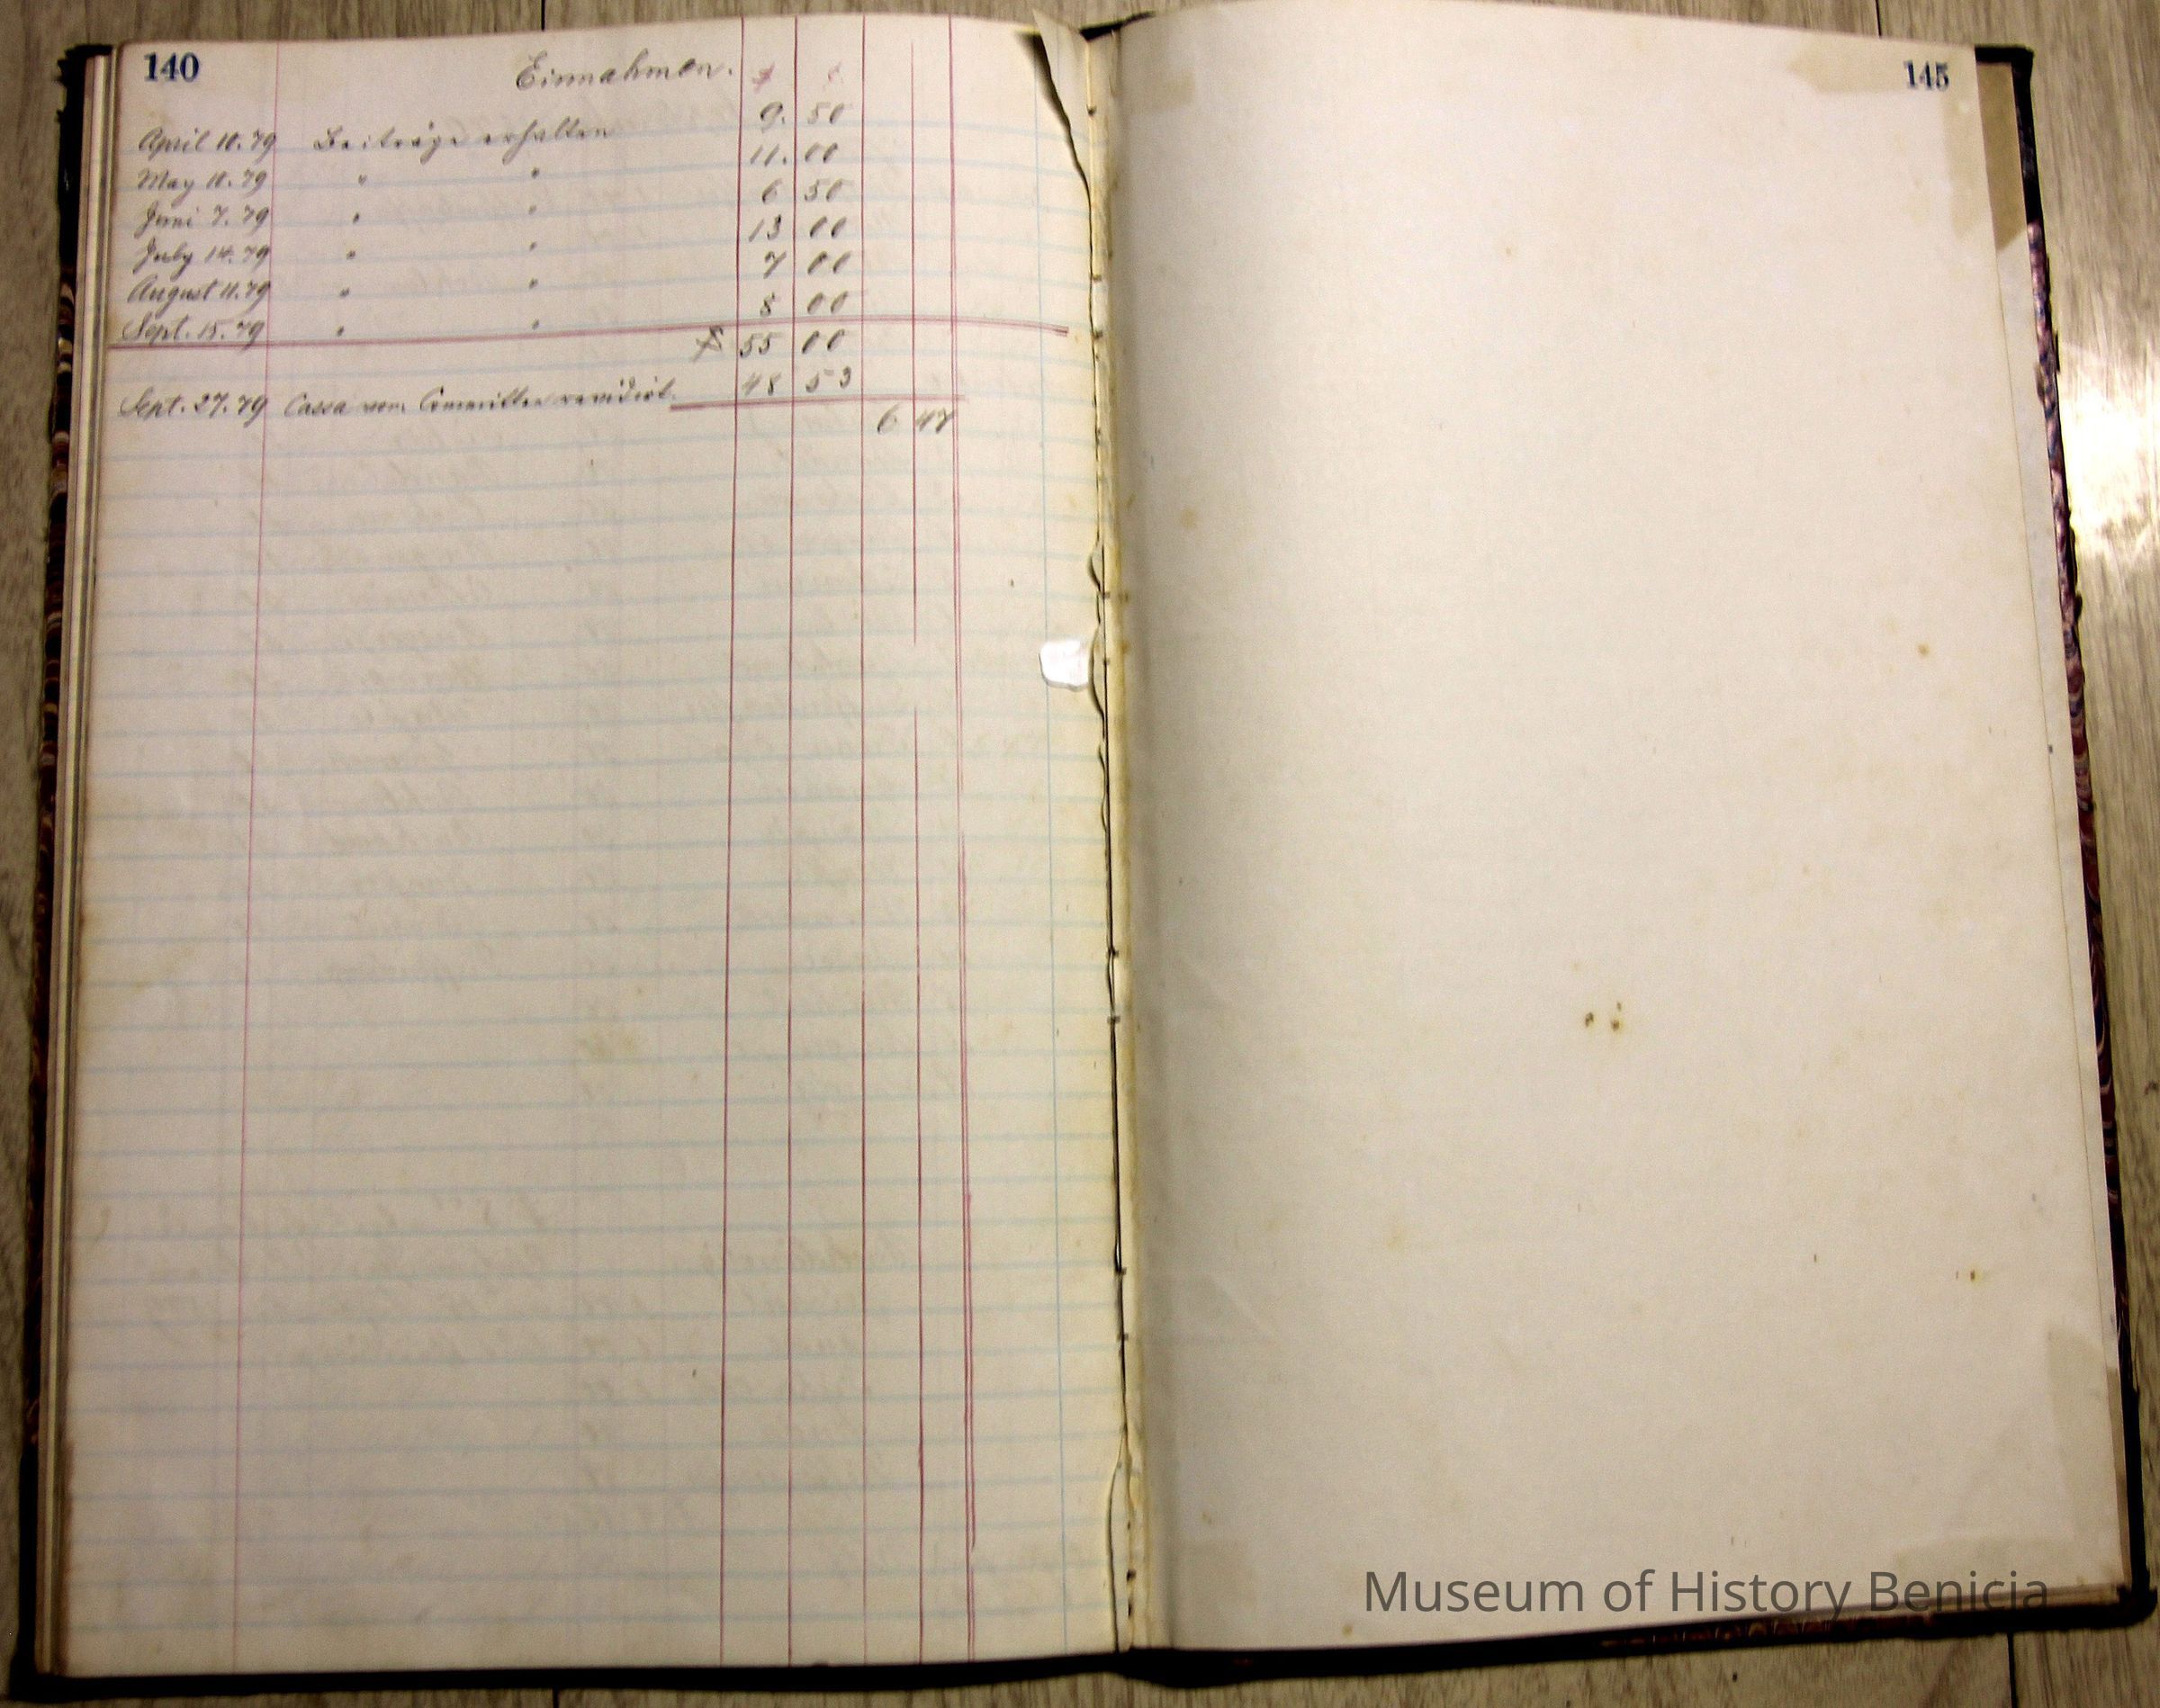 140
Einnahmen. $ ¢
April 10. 79 Beiträge erhalten 9. 50
May 11. 79 " " 11. 00
Juni 7. 79 " " 6 50
July 14. 79 " " 13 00
August 11. 79 " " 7 00
Sept. 15. 79 " " 8 00
$ 55 00
Sept. 27. 79 Cassa vom Committee revidirt. 48 53
6 47
145
Museum of History Benicia